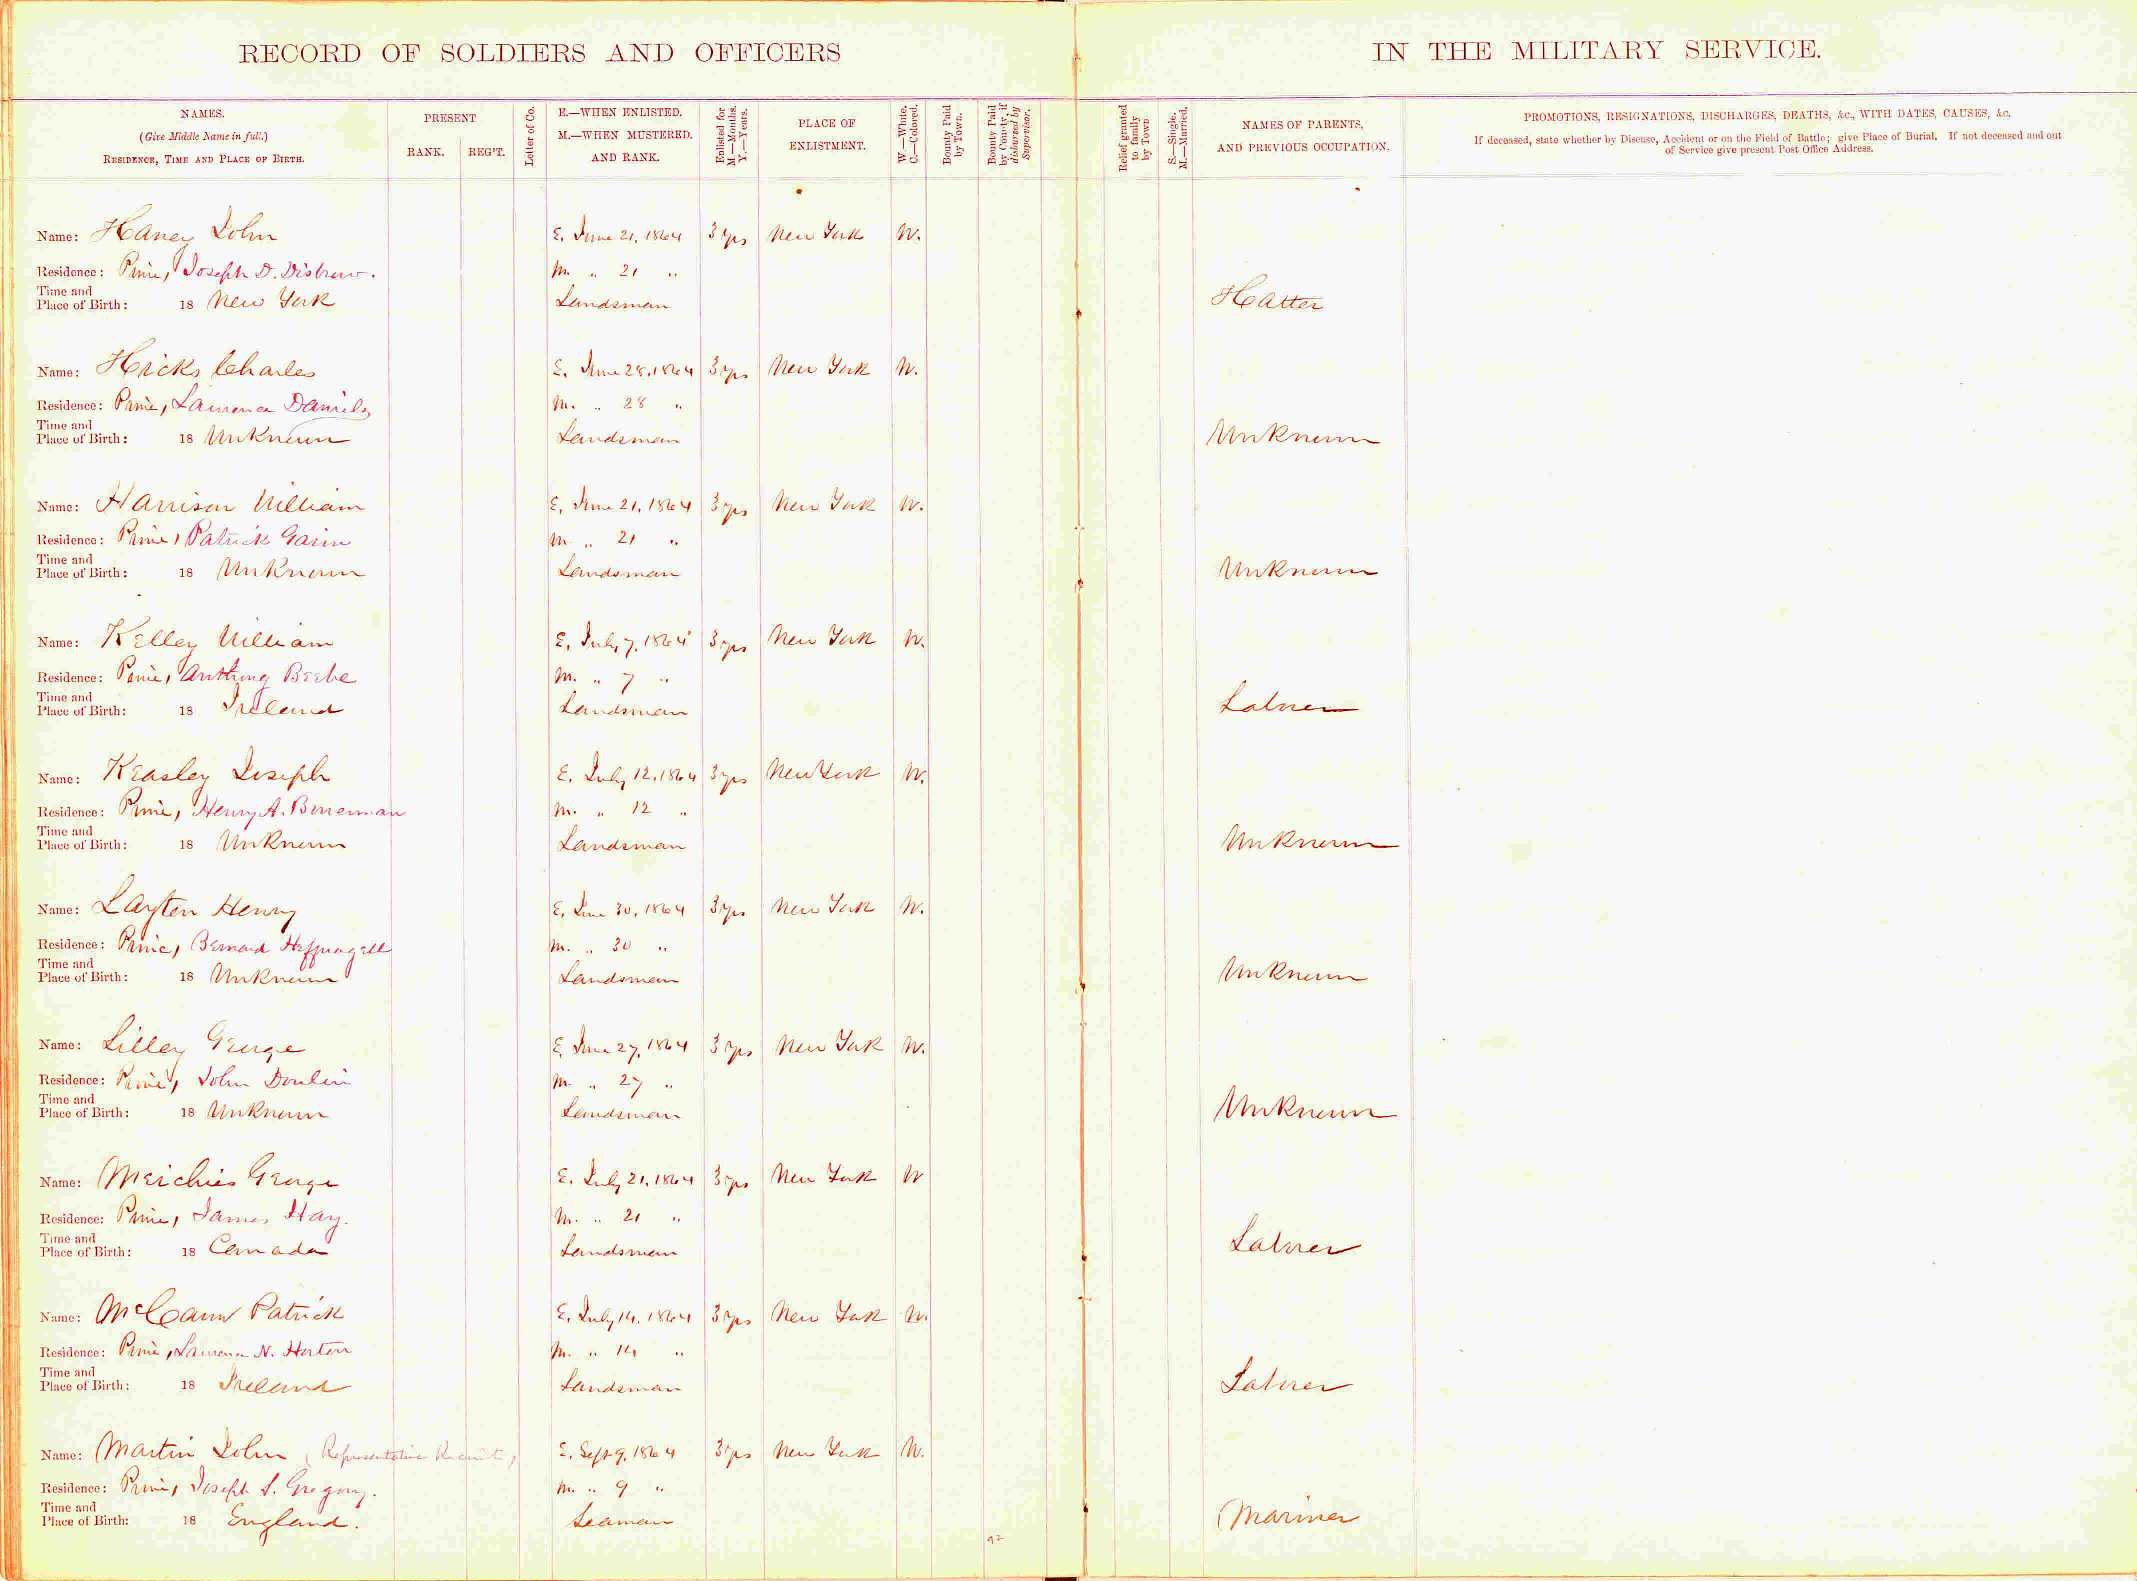 RECORD OF SOLDIERS AND OFFICERS IN THE MILITARY SERVICE.
NAMES.
(Give Middle Name in full.)
RESIDENCE, TIME AND PLACE OF BIRTH.
PRESENT
RANK. REG'T.
Letter of Co.
E.—WHEN ENLISTED.
M.—WHEN MUSTERED.
AND RANK.
Enlisted for
M—Months.
Y.—Years.
PLACE OF
ENLISTMENT.
W.—White.
C.—Colored.
Bounty Paid
by Town.
Bounty Paid
by County, if
disbursed by
Supervisor.
Relief granted
to family
by Town
S.—Single.
M.—Married.
NAMES OF PARENTS,
AND PREVIOUS OCCUPATION.
PROMOTIONS, RESIGNATIONS, DISCHARGES, DEATHS, &c., WITH DATES, CAUSES, &c.
If deceased, state whether by Disease, Accident or on the Field of Battle; give Place of Burial. If not deceased and out
of Service give present Post Office Address.
Name: Haney John E. June 21, 1864 3 yrs New York W.
Residence: Prin, Joseph D. Disbrow. M. " 21 "
Time and
Place of Birth: 18 New York Landsman Hatter
Name: Hicks Charles E. June 28, 1864 3 yrs New York W.
Residence: Prin, Laurence Daniels M. " 28 "
Time and
Place of Birth: 18 Unknown Landsman Unknown
Name: Harrison William E. June 21, 1864 3 yrs New York W.
Residence: Prin, Patrick M. " 21 "
Time and
Place of Birth: 18 Unknown Landsman Unknown
Name: Kelley William E. July 7, 1864 3 yrs New York W.
Residence: Prin, Anthony Beebe M. " 7 "
Time and
Place of Birth: 18 Ireland Landsman Laborer
Name: Keasley Joseph E. July 12, 1864 3 yrs New York W.
Residence: Prin, Henry A. Bowerman M. " 12 "
Time and
Place of Birth: 18 Unknown Landsman Unknown
Name: Layten Henry E. June 30, 1864 3 yrs New York W.
Residence: Prin, Bernard M. " 30 "
Time and
Place of Birth: 18 Unknown Landsman Unknown
Name: Lilley George E. June 27, 1864 3 yrs New York W.
Residence: Prin, John Donlin M. " 27 "
Time and
Place of Birth: 18 Unknown Landsman Unknown
Name: Meichies George E. July 21, 1864 3 yrs New York W
Residence: Prin, James Hay. M. " 21 "
Time and
Place of Birth: 18 Canada Landsman Laborer
Name: McCann Patrick E. July 14, 1864 3 yrs New York W.
Residence: Prin, Laurence N. Horton M. " 14 "
Time and
Place of Birth: 18 Ireland Landsman Laborer
Name: Martin John (Representative Recruit) E. Sept 9, 1864 3 yrs New York W.
Residence: Prin, Joseph S. Gregory. M. " 9 "
Time and
Place of Birth: 18 England. Seaman Mariner
92